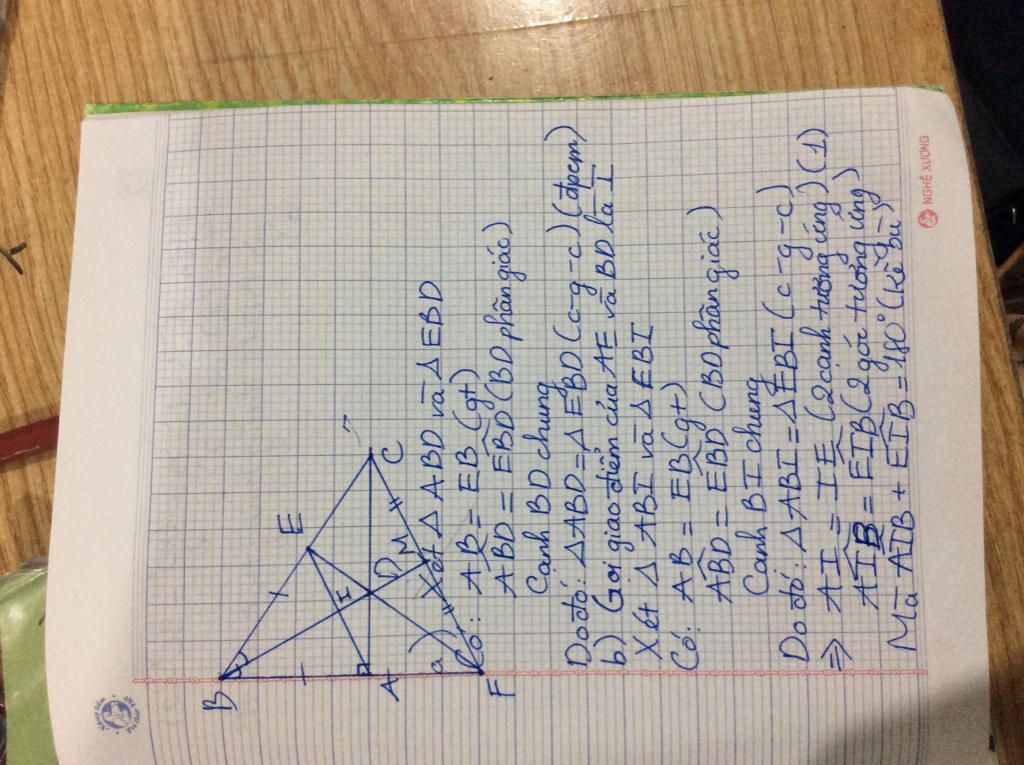 B
E
I
A
D
C
M
F
a) Xét Δ ABD và Δ EBD
Có: AB = EB (gt)
ABD = EBD (BD phân giác)
Cạnh BD chung
Do đó: Δ ABD = Δ EBD (c-g-c) (đpcm)
b) Gọi giao điểm của AE và BD là I
Xét Δ ABI và Δ EBI
Có: AB = EB (gt)
ABD = EBD (BD phân giác)
Cạnh BI chung
Do đó: Δ ABI = Δ EBI (c-g-c)
⇒ AI = IE (2 cạnh tương ứng) (1)
AIB = EIB (2 góc tương ứng)
Mà AIB + EIB = 180° (kề bù)
NGHỆ XƯƠNG